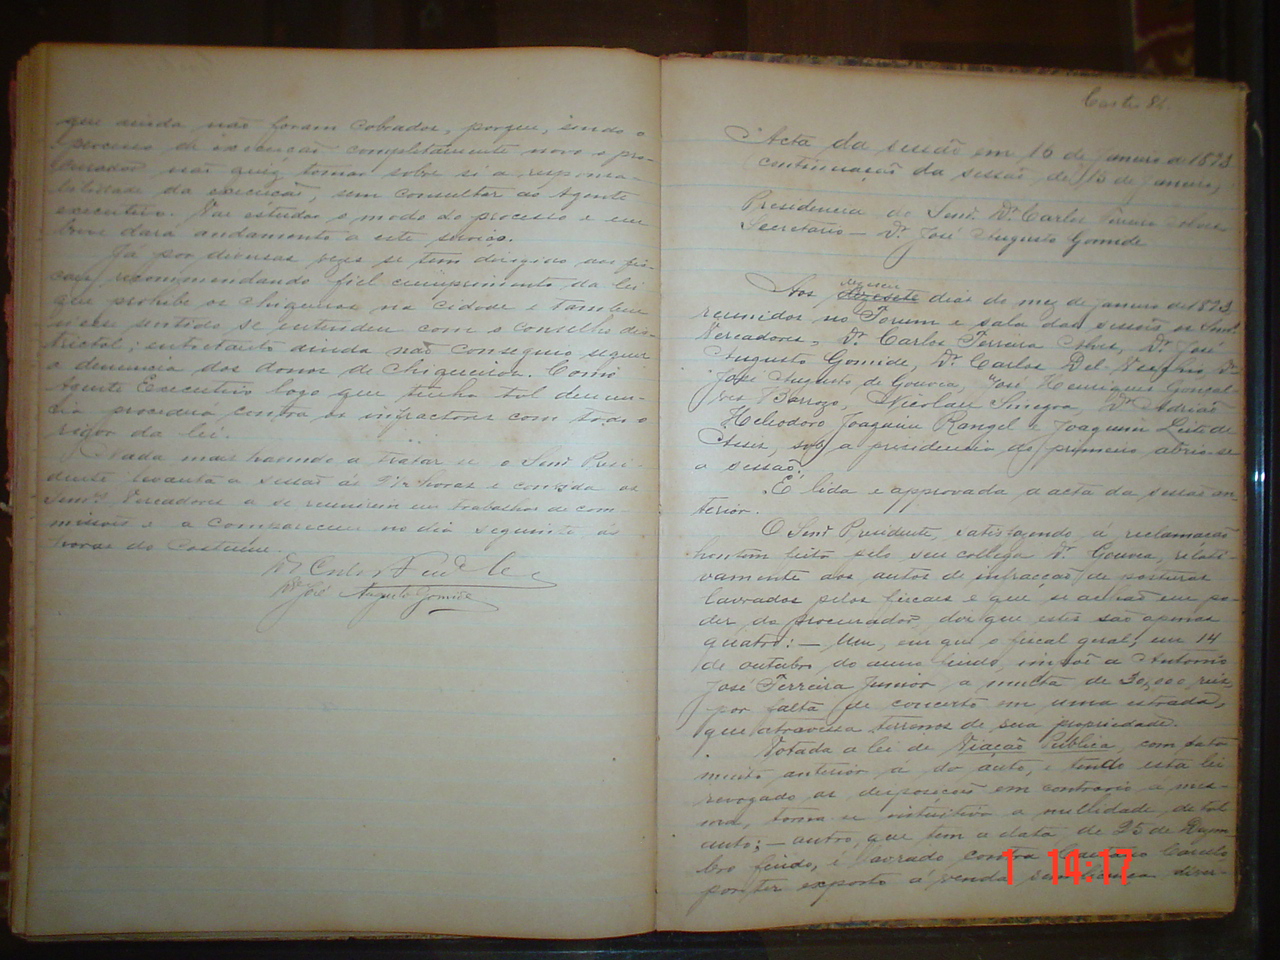 que ainda não foram cobrados, porque, sendo o
processo de execução completamente novo o pro-
curador não quiz tomar sobre si a responsa-
bilidade da execução, sem consultar ao Agente
executivo. Vae estudar o modo do processo e em
breve dará andamento a este serviço.
Já por diversas vezes se tem dirigido aos fis-
caes recommendando fiel cumprimento da lei
que prohibe os chiqueiros na cidade e tambem
nesse sentido se entendeu com o conselho dis-
trictal; entretanto ainda não conseguio seguir
a denuncia dos donos de chiqueiros. Como
Agente Executivo logo que tenha tal denun-
cia procederá contra os infractores com todo o
rigor da lei.
Nada mais havendo a tratar-se o Senr. Presi-
dente levanta a sessão ás horas e convida os
Senrs. Vereadores a se reunirem em trabalhos de com-
missões e a comparecerem no dia seguinte ás
horas do costume.
Dr. Carlos
Dr. José Augusto Gomide
Acta da sessão em 16 de Janeiro de 1893
continuação da sessão de 15 de Janeiro,
Presidencia do Senr. Dr. Carlos Ferreira Alves
Secretario — Dr. José Augusto Gomide
Aos dezeseis dezesete dias do mez de janeiro de 1893,
reunidos no Forum e sala das sessões os Senrs.
Vereadores, Dr. Carlos Ferreira Alves, Dr. José
Augusto Gomide, Dr. Carlos Del Dr.
José Augusto de Gouvea, José Henriques Gonçal-
ves Barrozo, Nicolau Dr. Adrião
Heliodoro Joaquim Rangel e Joaquim Leite de
Assis, sob a presidencia do primeiro abrio-se
a sessão.
É lida e approvada a acta da sessão an-
terior.
O Senr. Presidente, satisfazendo á reclamação
hontem feita pelo seu collega Dr. Gouvea, relati-
vamente aos autos de infracção de posturas
lavrados pelos fiscaes e que se achão em po-
der do procurador, diz que estes são apenas
quatro: — Um, em que o fiscal geral, em 14
de outubro do anno findo, impõe a Antonio
José Ferreira Junior a multa de 30,000 reis,
por falta de concerto em uma estrada,
que atravessa terrenos de sua propriedade.
Votada a lei de Viação Publica, com data
muito anterior á do auto, e tendo esta lei
revogado as disposições em contrario a mes-
ma, torna-se intuitiva a nullidade de tal
auto; — outro, que tem a data de 25 de Dezem-
bro findo, é lavrado contra Caetano
por ter exposto á venda sem licença diver-
1 14:17